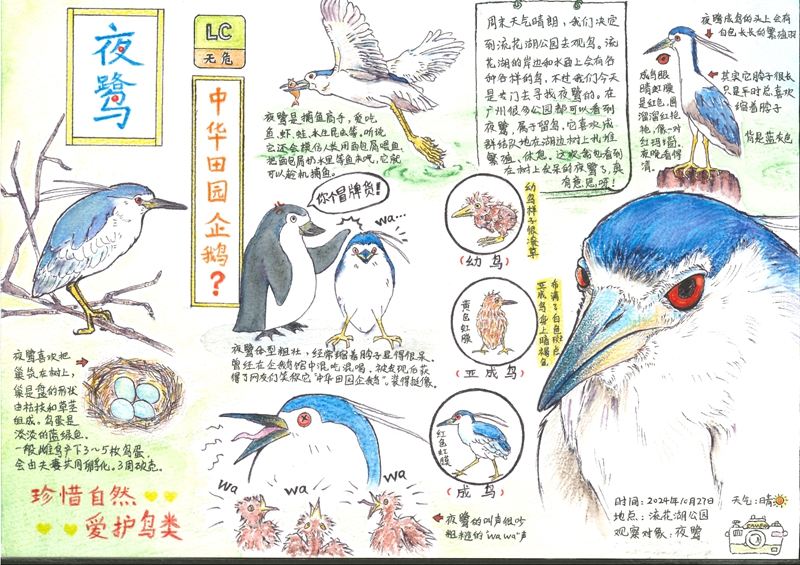 夜鹭
LC
无危
中华田园企鹅?
夜鹭是捕鱼高手，爱吃
鱼、虾、蛙、水生昆虫等。听说
它还会模仿人类用面包屑喂鱼，
把面包屑扔水里等鱼来吃，它就
可以趁机捕鱼。
周末天气晴朗，我们决定
到流花湖公园去观鸟。流
花湖的岸边和水面上会有各
种各样的鸟，不过我们今天
是专门去寻找夜鹭的。在
广州很多公园都可以看到
夜鹭，属于留鸟，它喜欢成
群结队地在湖边树上扎堆
繁殖、休息。这次我也看到
在树上发呆的夜鹭了，真
有意思呀!
夜鹭成鸟的头上会有
白色长长的繁殖羽
成鸟眼
睛虹膜
是红色，圆
溜溜红艳
艳，像一对
红玛瑙。
夜晚看得
清。
其实它脖子很长
只是平时总喜欢
缩着脖子
背是蓝色
你冒牌货!
wa...
夜鹭体型粗壮，经常缩着脖子显得很呆，
曾经在企鹅馆中混吃混喝，被发现后获
得了网友们笑称它"中华田园企鹅"。装得挺像。
幼鸟样子很潦草
(幼鸟)
黄色虹膜
布满了白色斑点
亚成鸟身上暗褐色
(亚成鸟)
红色虹膜
(成鸟)
夜鹭喜欢把
巢筑在树上，
巢是盘的形状
由枯枝和草茎
组成。鸟蛋是
淡淡的蓝绿色。
一般雌鸟产下3~5枚鸟蛋，
会由夫妻共同孵化。3周破壳。
珍惜自然
爱护鸟类
wa
wa
wa
夜鹭的叫声很吵
粗糙的"wa wa"声
时间：2024年10月27日
天气：晴
地点：流花湖公园
观察对象：夜鹭